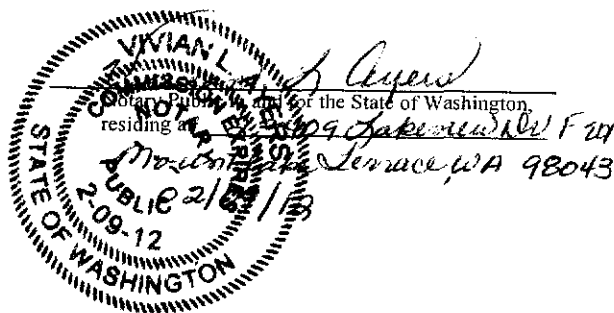 VIVIAN L. AYERS
COMMISSION EXPIRES
NOTARY
PUBLIC
2-09-12
STATE OF WASHINGTON
L Ayers
Notary Public in and for the State of Washington,
residing at Lakeview Dr F
Mountlake Terrace, WA 98043